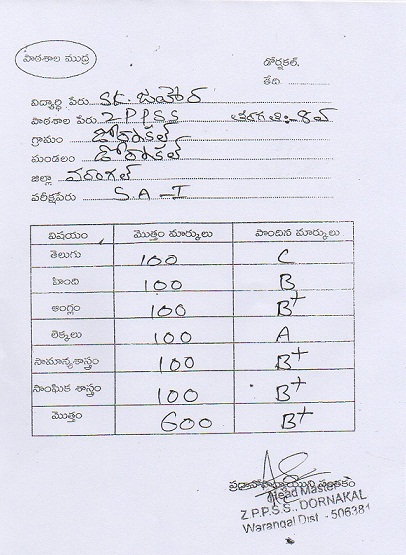 పాఠశాల ముద్ర
డోర్నకల్.
తేది
విద్యార్థి పేరు SK.
పాఠశాల పేరు Z P P S S తరగతి:- 8వ
గ్రామం డోర్నకల్
మండలం డోర్నకల్
జిల్లా వరంగల్
పరీక్షపేరు S.A-I
విషయం మొత్తం మార్కులు పొందిన మార్కులు
తెలుగు 100 C
హింది 100 B
ఆంగ్లం 100 B+
లెక్కలు 100 A
సామాన్యశాస్త్రం 100 B+
సాంఘిక శాస్త్రం 100 B+
మొత్తం 600 B+
ప్రధానోపాధ్యాయుని సంతకం
Head Master
Z.P.P.S.S., DORNAKAL
Warangal Dist - 506381